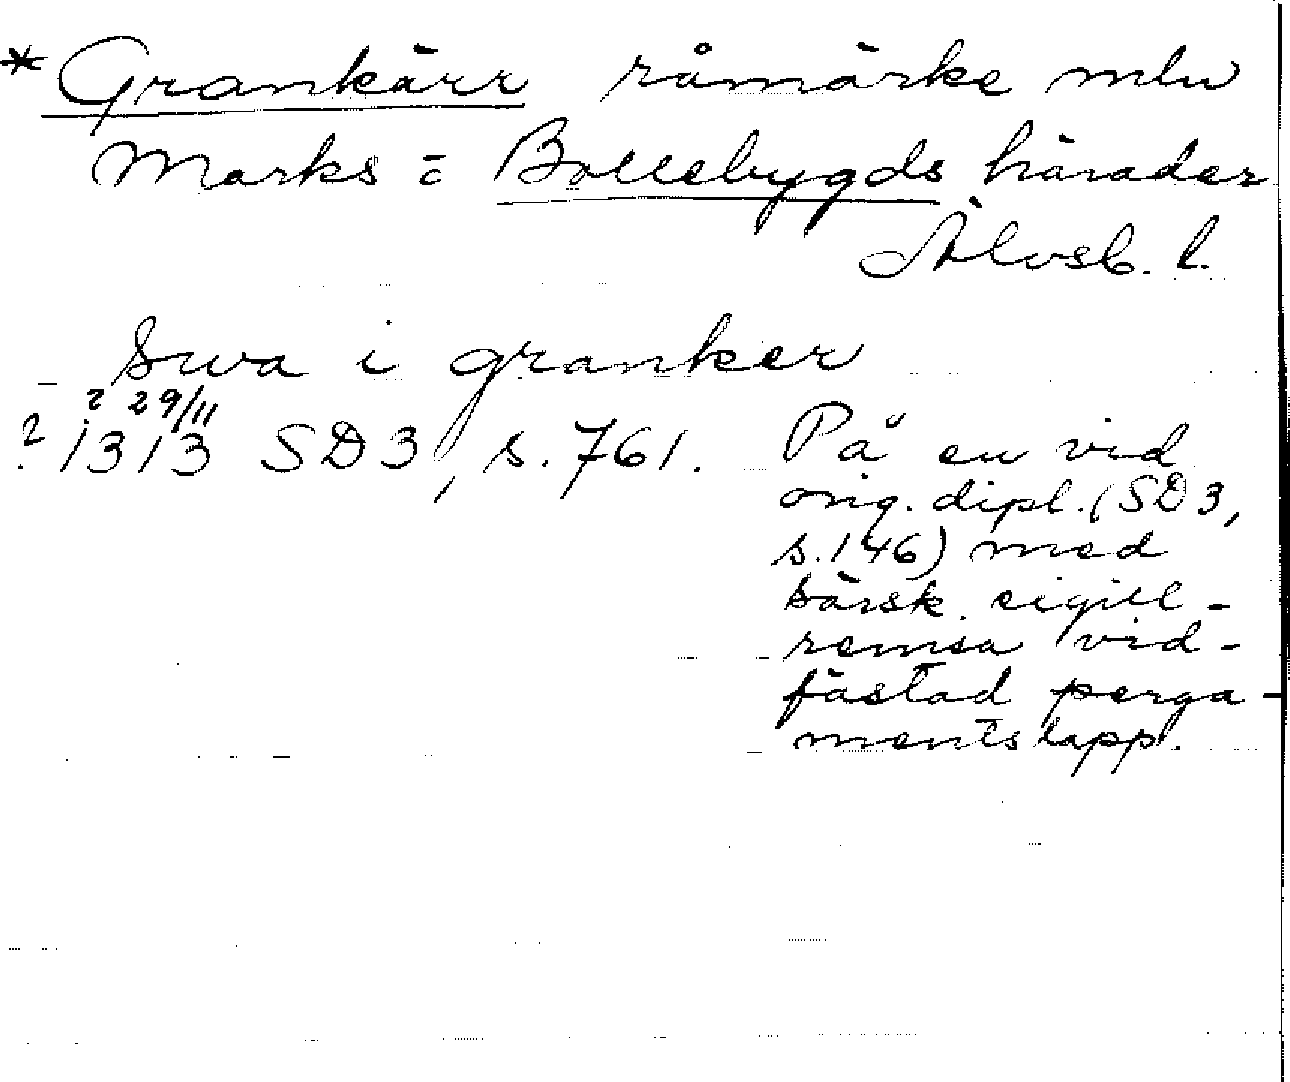 * Grankärr råmärke mlu
Marks = Bollebygds härader
Älvsb. l.
Swa i granker
? 29/11
? 1313 SD3, s. 761.
På en vid
orig. dipl. (SD3,
s. 146) med
särsk. sigill-
remsa vid-
fästad perga-
mentslapp.